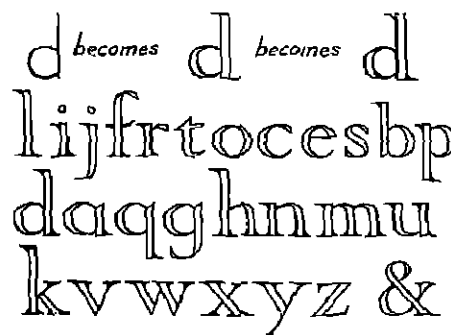 d becomes d becomes d
lijfrtocesbp
daqghnmu
kvwxyz &